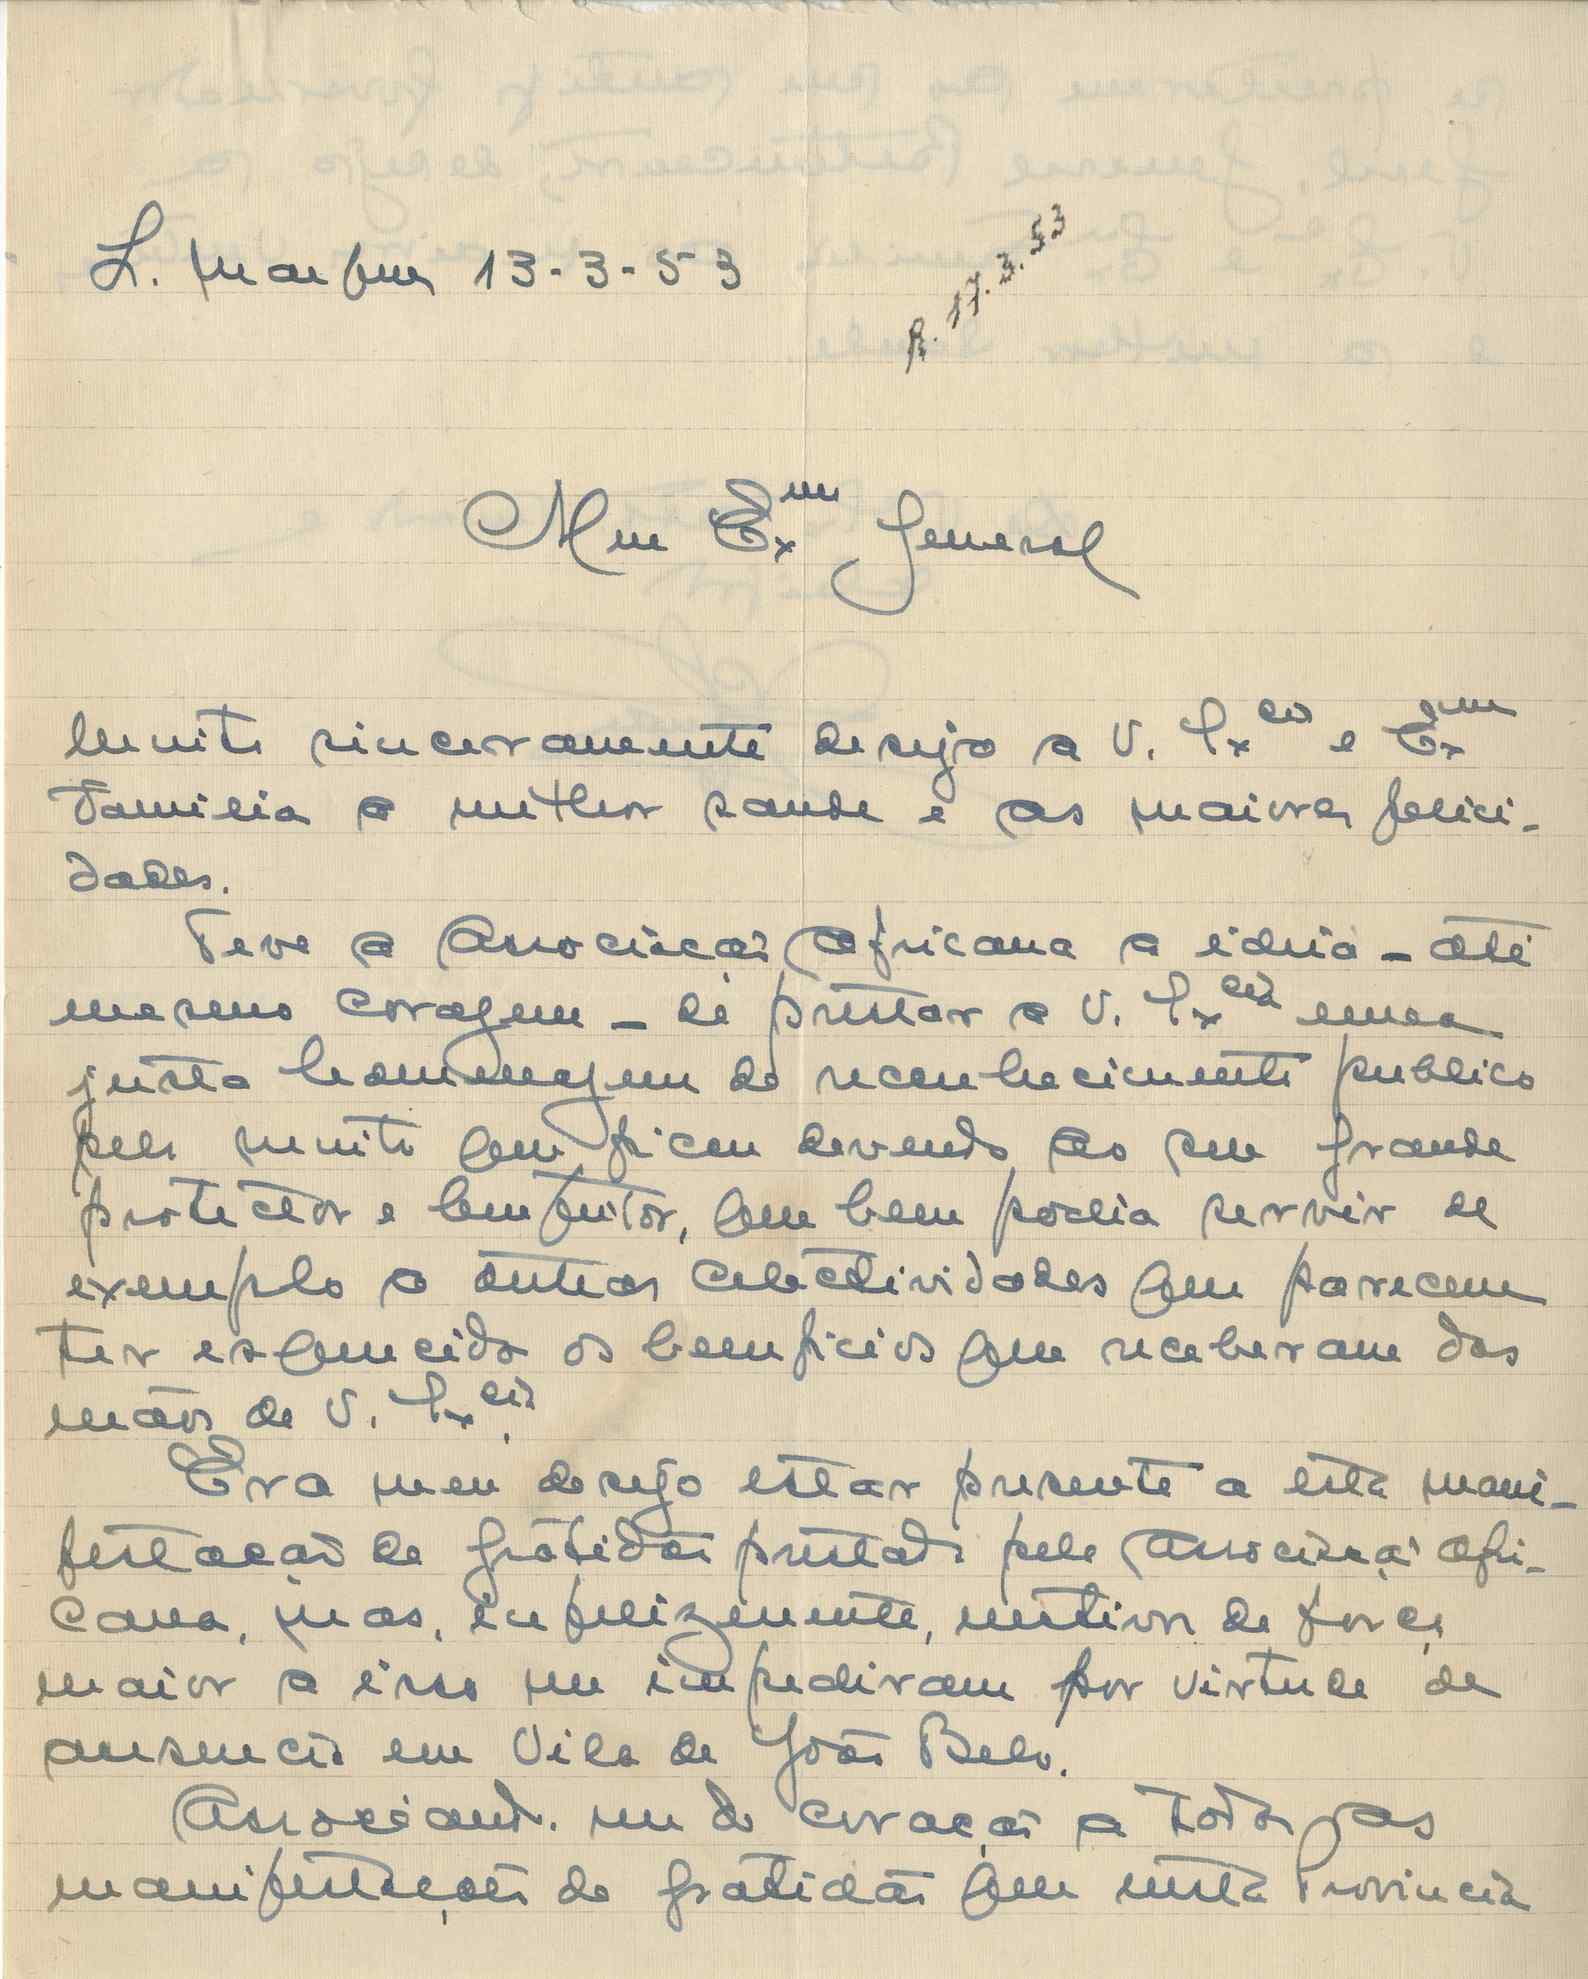 L. Marques 13-3-53
R. 17.3.53
Meu Exmo General
Muito sinceramente desejo a V. Excia e Exma
Familia a melhor saude e as maiores felici-
dades.
Teve a Associação Africana a ideia - até
mesmo coragem - de prestar a V. Excia uma
justa homenagem de reconhecimento publico
pelo muito que ficou devendo ao seu grande
protector e bemfeitor, que bem podia servir de
exemplo a outras colectividades que parecem
ter esquecido os beneficios que receberam das
mãos de V. Excia.
Era meu desejo estar presente a esta mani-
festação de gratidão prestada pela Associação Afri-
cana, mas, infelizmente, motivos de força
maior a isso me impediram por virtude de
ausencia em Vila de João Belo.
Associando-me do coração a todas as
manifestações de gratidão que nesta Provincia